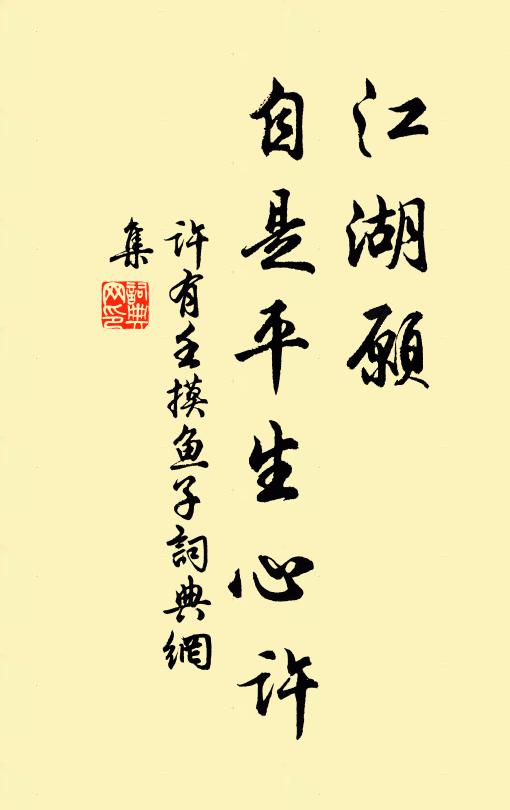 江湖願
自是平生心許
许有壬摸鱼子詞典網
集
詞典
网印